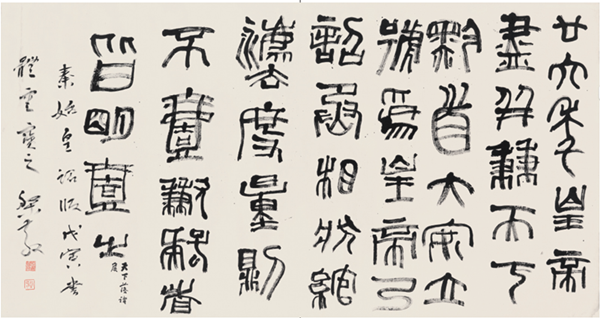 廿六年皇帝
盡并兼天下
黔首大安立
號為皇帝乃
詔丞相狀綰
灋度量則
不壹歉疑者
皆明壹之
天下落諸
侯
秦始皇詔版戊寅書